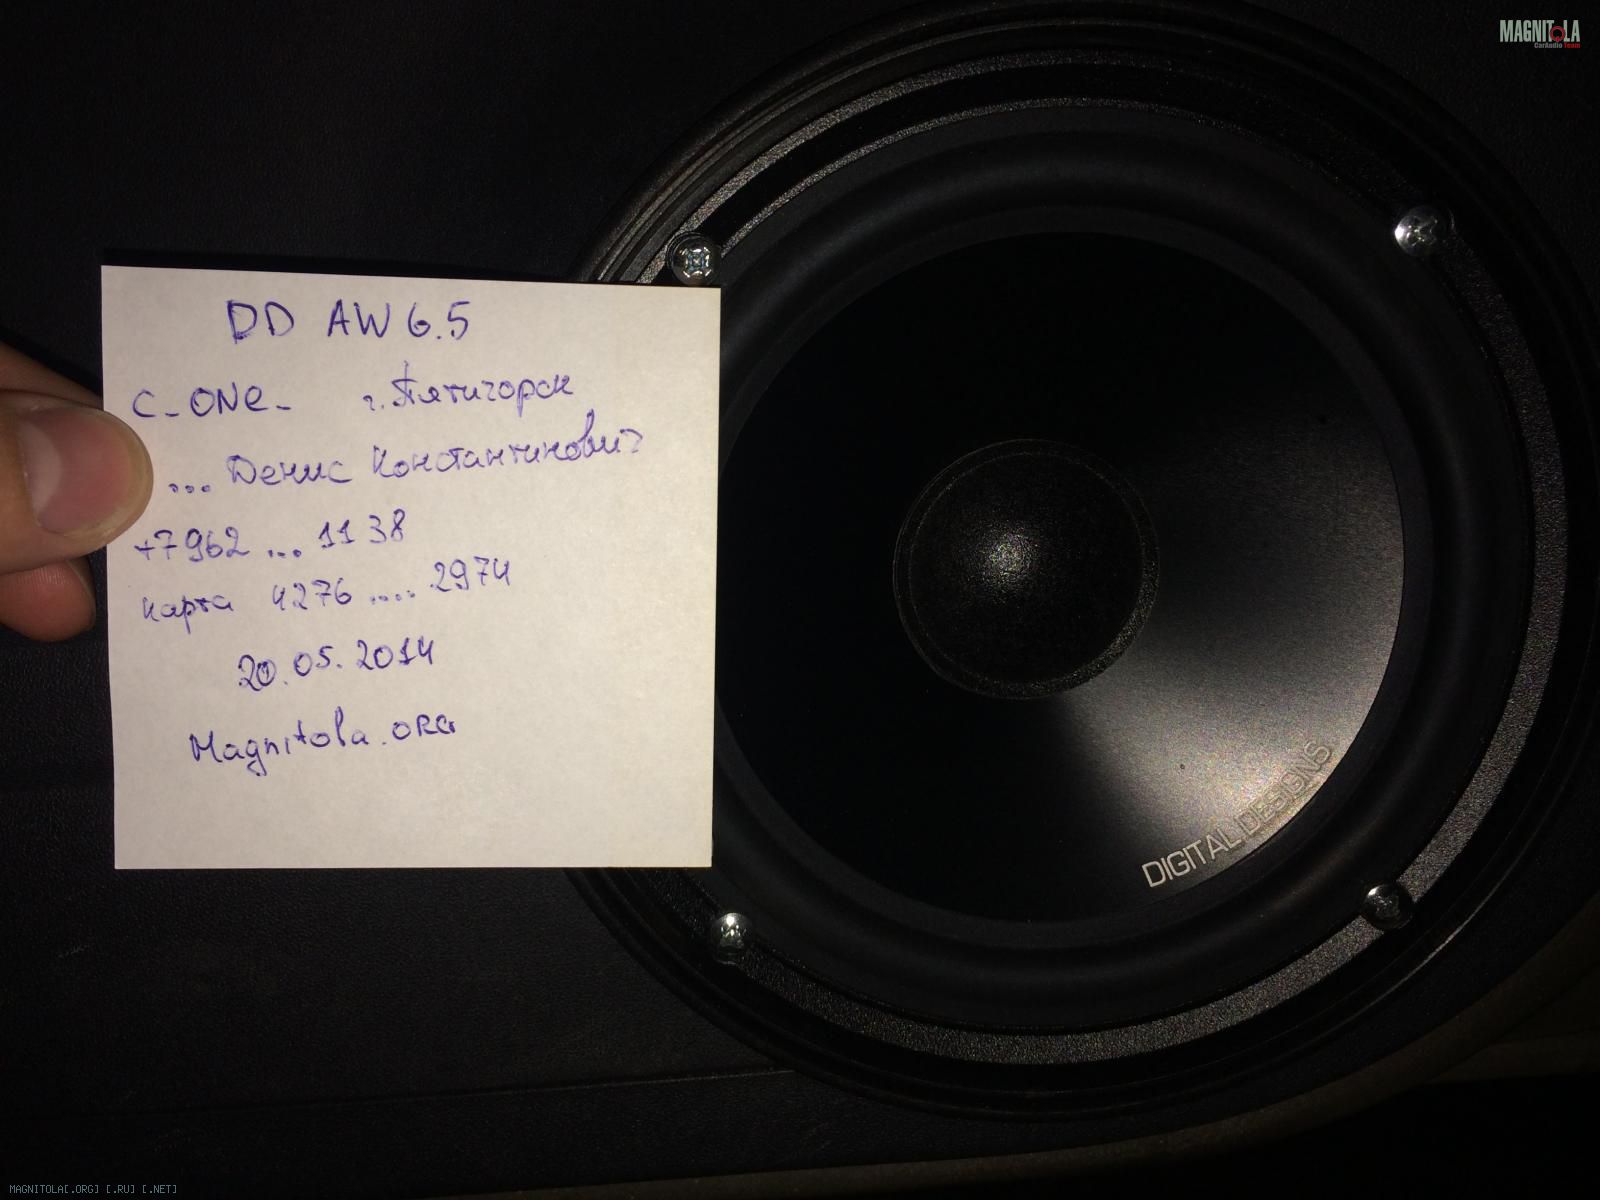 MAGNITOLA
CarAudio Team
DD AW 6.5
C_ONe_ г.Пятигорск
... Денис Константинович
+7962 ... 1138
карта 4276 ..... 2974
20.05.2014
Magnitola.ORG
DIGITAL DESIGNS
MAGNITOLA[.ORG] [.RU] [.NET]